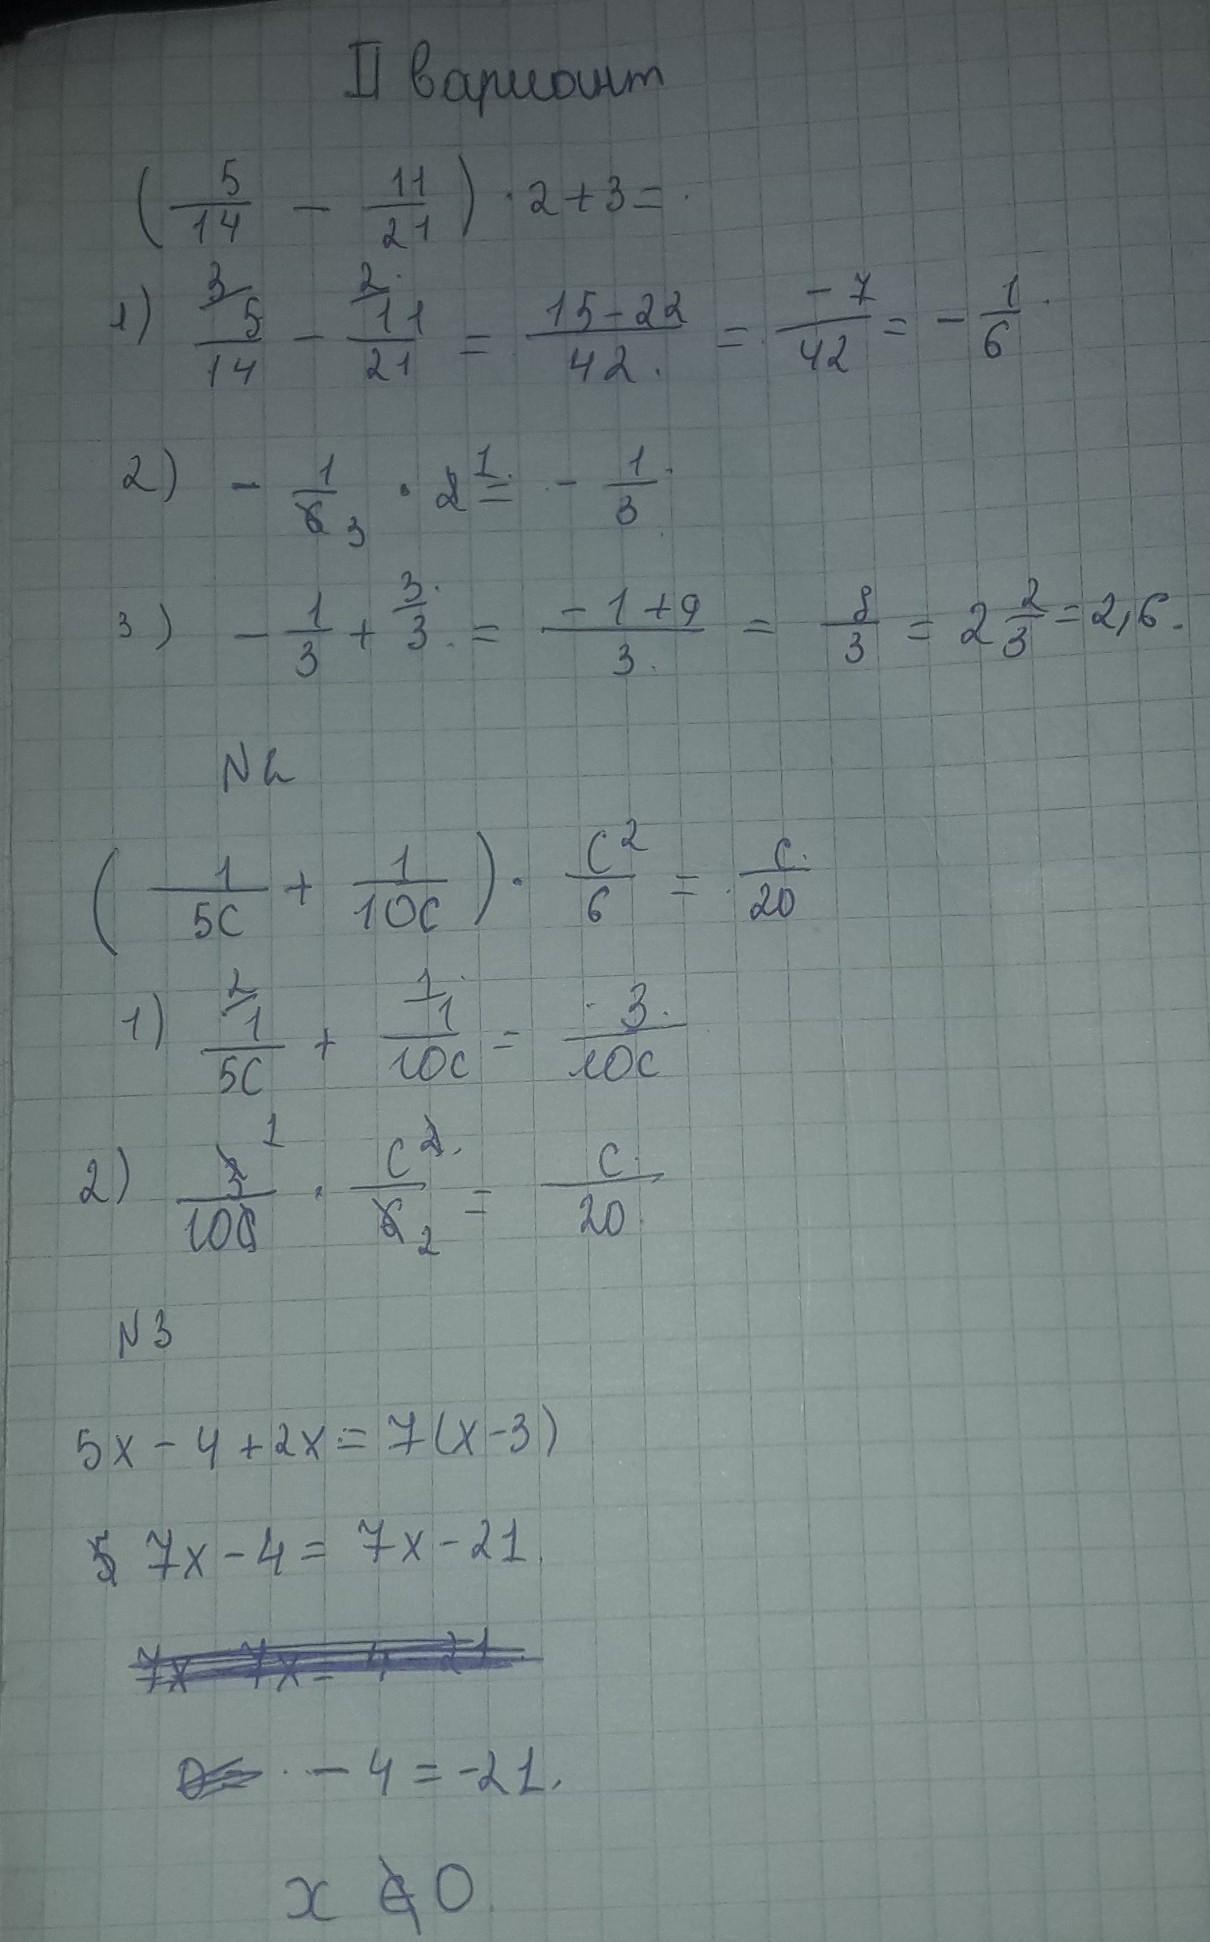 II вариант
(5/14 - 11/21) · 2 + 3 =
1) 3/ 5/14 - 2/ 11/21 = 15-22/42 = -7/42 = - 1/6
2) - 1/6 3 · 2 1 = - 1/3
3) - 1/3 + 3/ 3 = -1+9/3 = 8/3 = 2 2/3 = 2,6.
N2
(1/5c + 1/10c) · c²/6 = c/20
1) 2/ 1/5c + 1/ 1/10c = 3/10c
2) 3 1/10c · c²/6 2 = c/20
N3
5x - 4 + 2x = 7(x-3)
7x - 4 = 7x - 21.
7x 7x = 4 21
- 4 = -21.
x 0